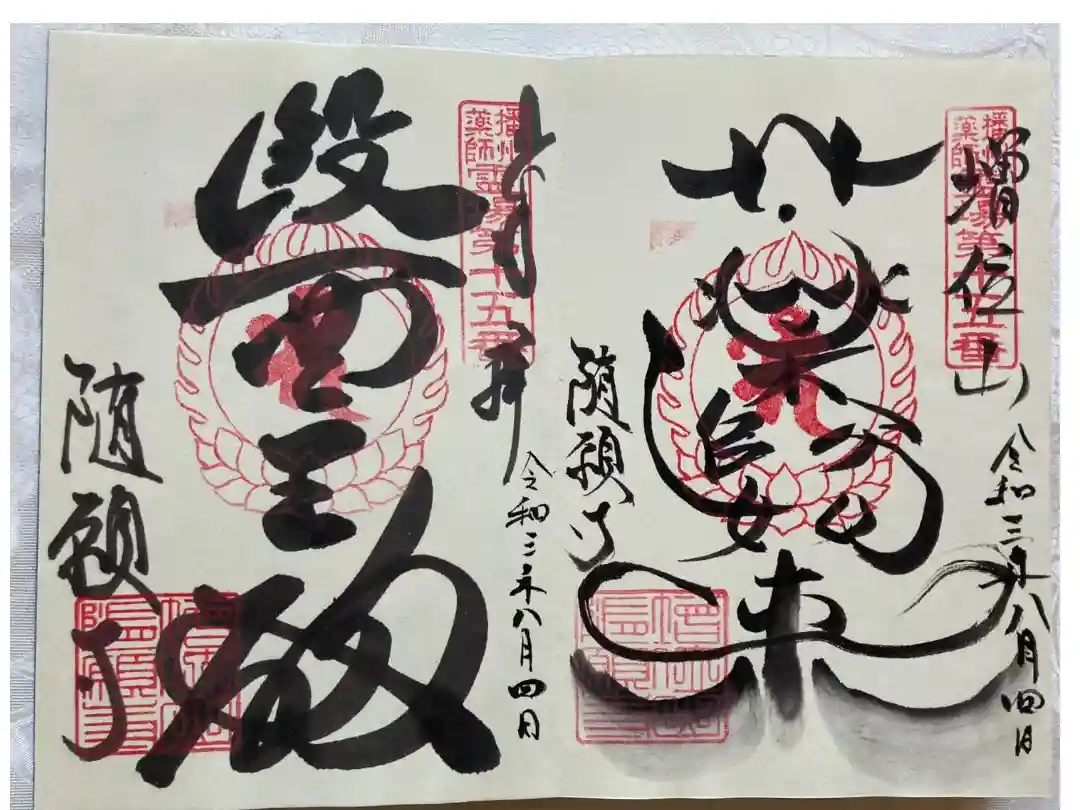 増位山
播州薬師霊場第十五番
令和三年八月四日
薬師如来
随願寺
播州薬師霊場第十五番
奉拝
令和三年八月四日
医王殿
随願寺